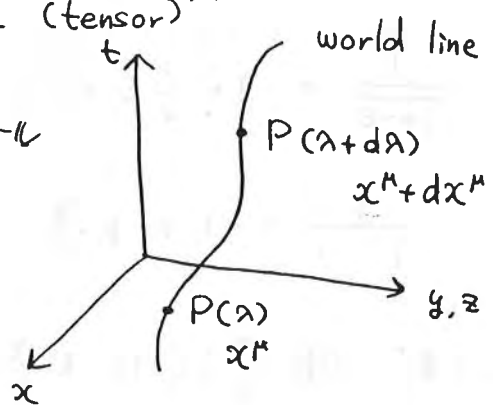 (tensor)
t
world line
ル
P(λ+dλ)
x^μ+dx^μ
y, z
P(λ)
x^μ
x